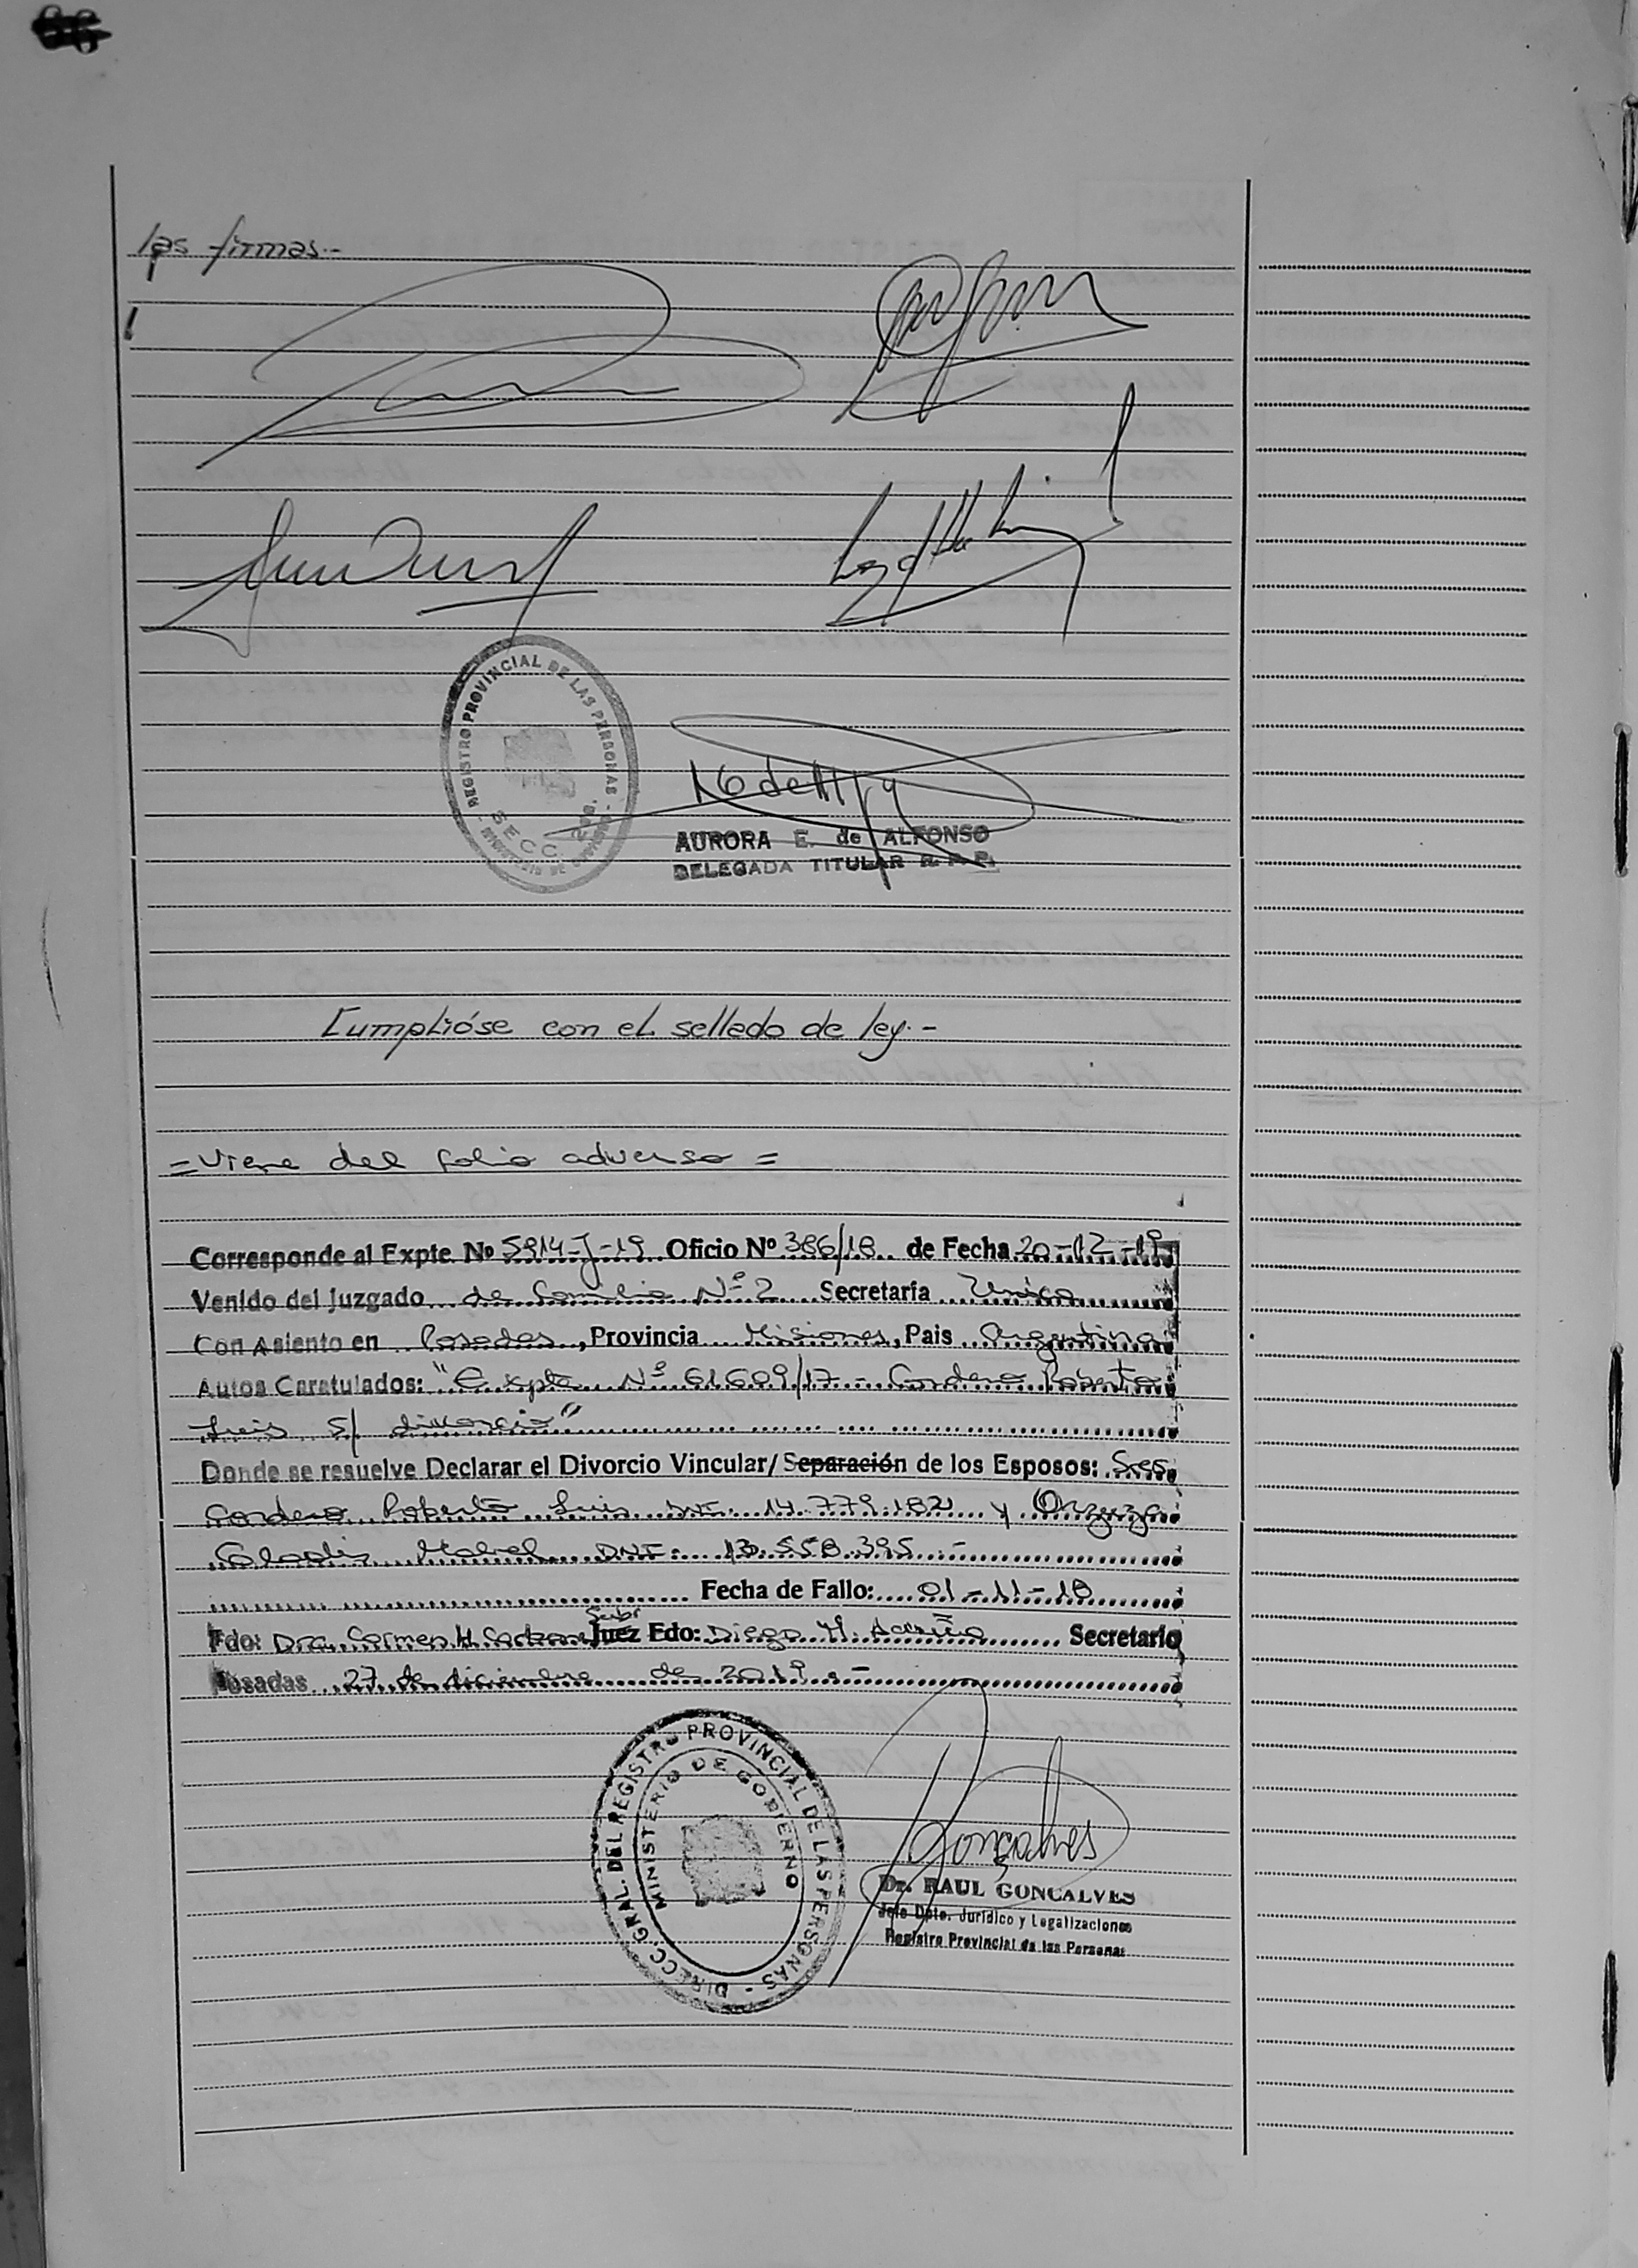 las firmas.-
REGISTRO PROVINCIAL DE LAS PERSONAS
SECC.
AURORA E. de ALFONSO
DELEGADA TITULAR R. P. P.
Cumplióse con el sellado de ley.-
= Viene del folio adverso =
Corresponde al Expte. Nº 5914-J-19 Oficio Nº 386/18 de Fecha 20-12-19
Venido del Juzgado de Familia Nº 2 Secretaría Unica
Con Asiento en Posadas, Provincia Misiones, Pais Argentina
Autos Caratulados: "Expte Nº 61609/17 - Cordero Roberto
Luis s/ divorcio"
Donde se resuelve Declarar el Divorcio Vincular/Separación de los Esposos: Sres
Cordero Roberto Luis DNI: 14.779.182 y
Mabel DNI: 13.558.395.-
Fecha de Fallo: 01-11-18
Fdo: Dra. Carmen H. Juez Fdo: Diego M. Secretario
Posadas 27 de diciembre de 2019.-
DIRECC. GRAL. DEL REGISTRO PROVINCIAL DE LAS PERSONAS -
MINISTERIO DE GOBIERNO
Goncalves
Dr. RAUL GONCALVES
Jefe Dpto. Jurídico y Legalizaciones
Registro Provincial de las Personas